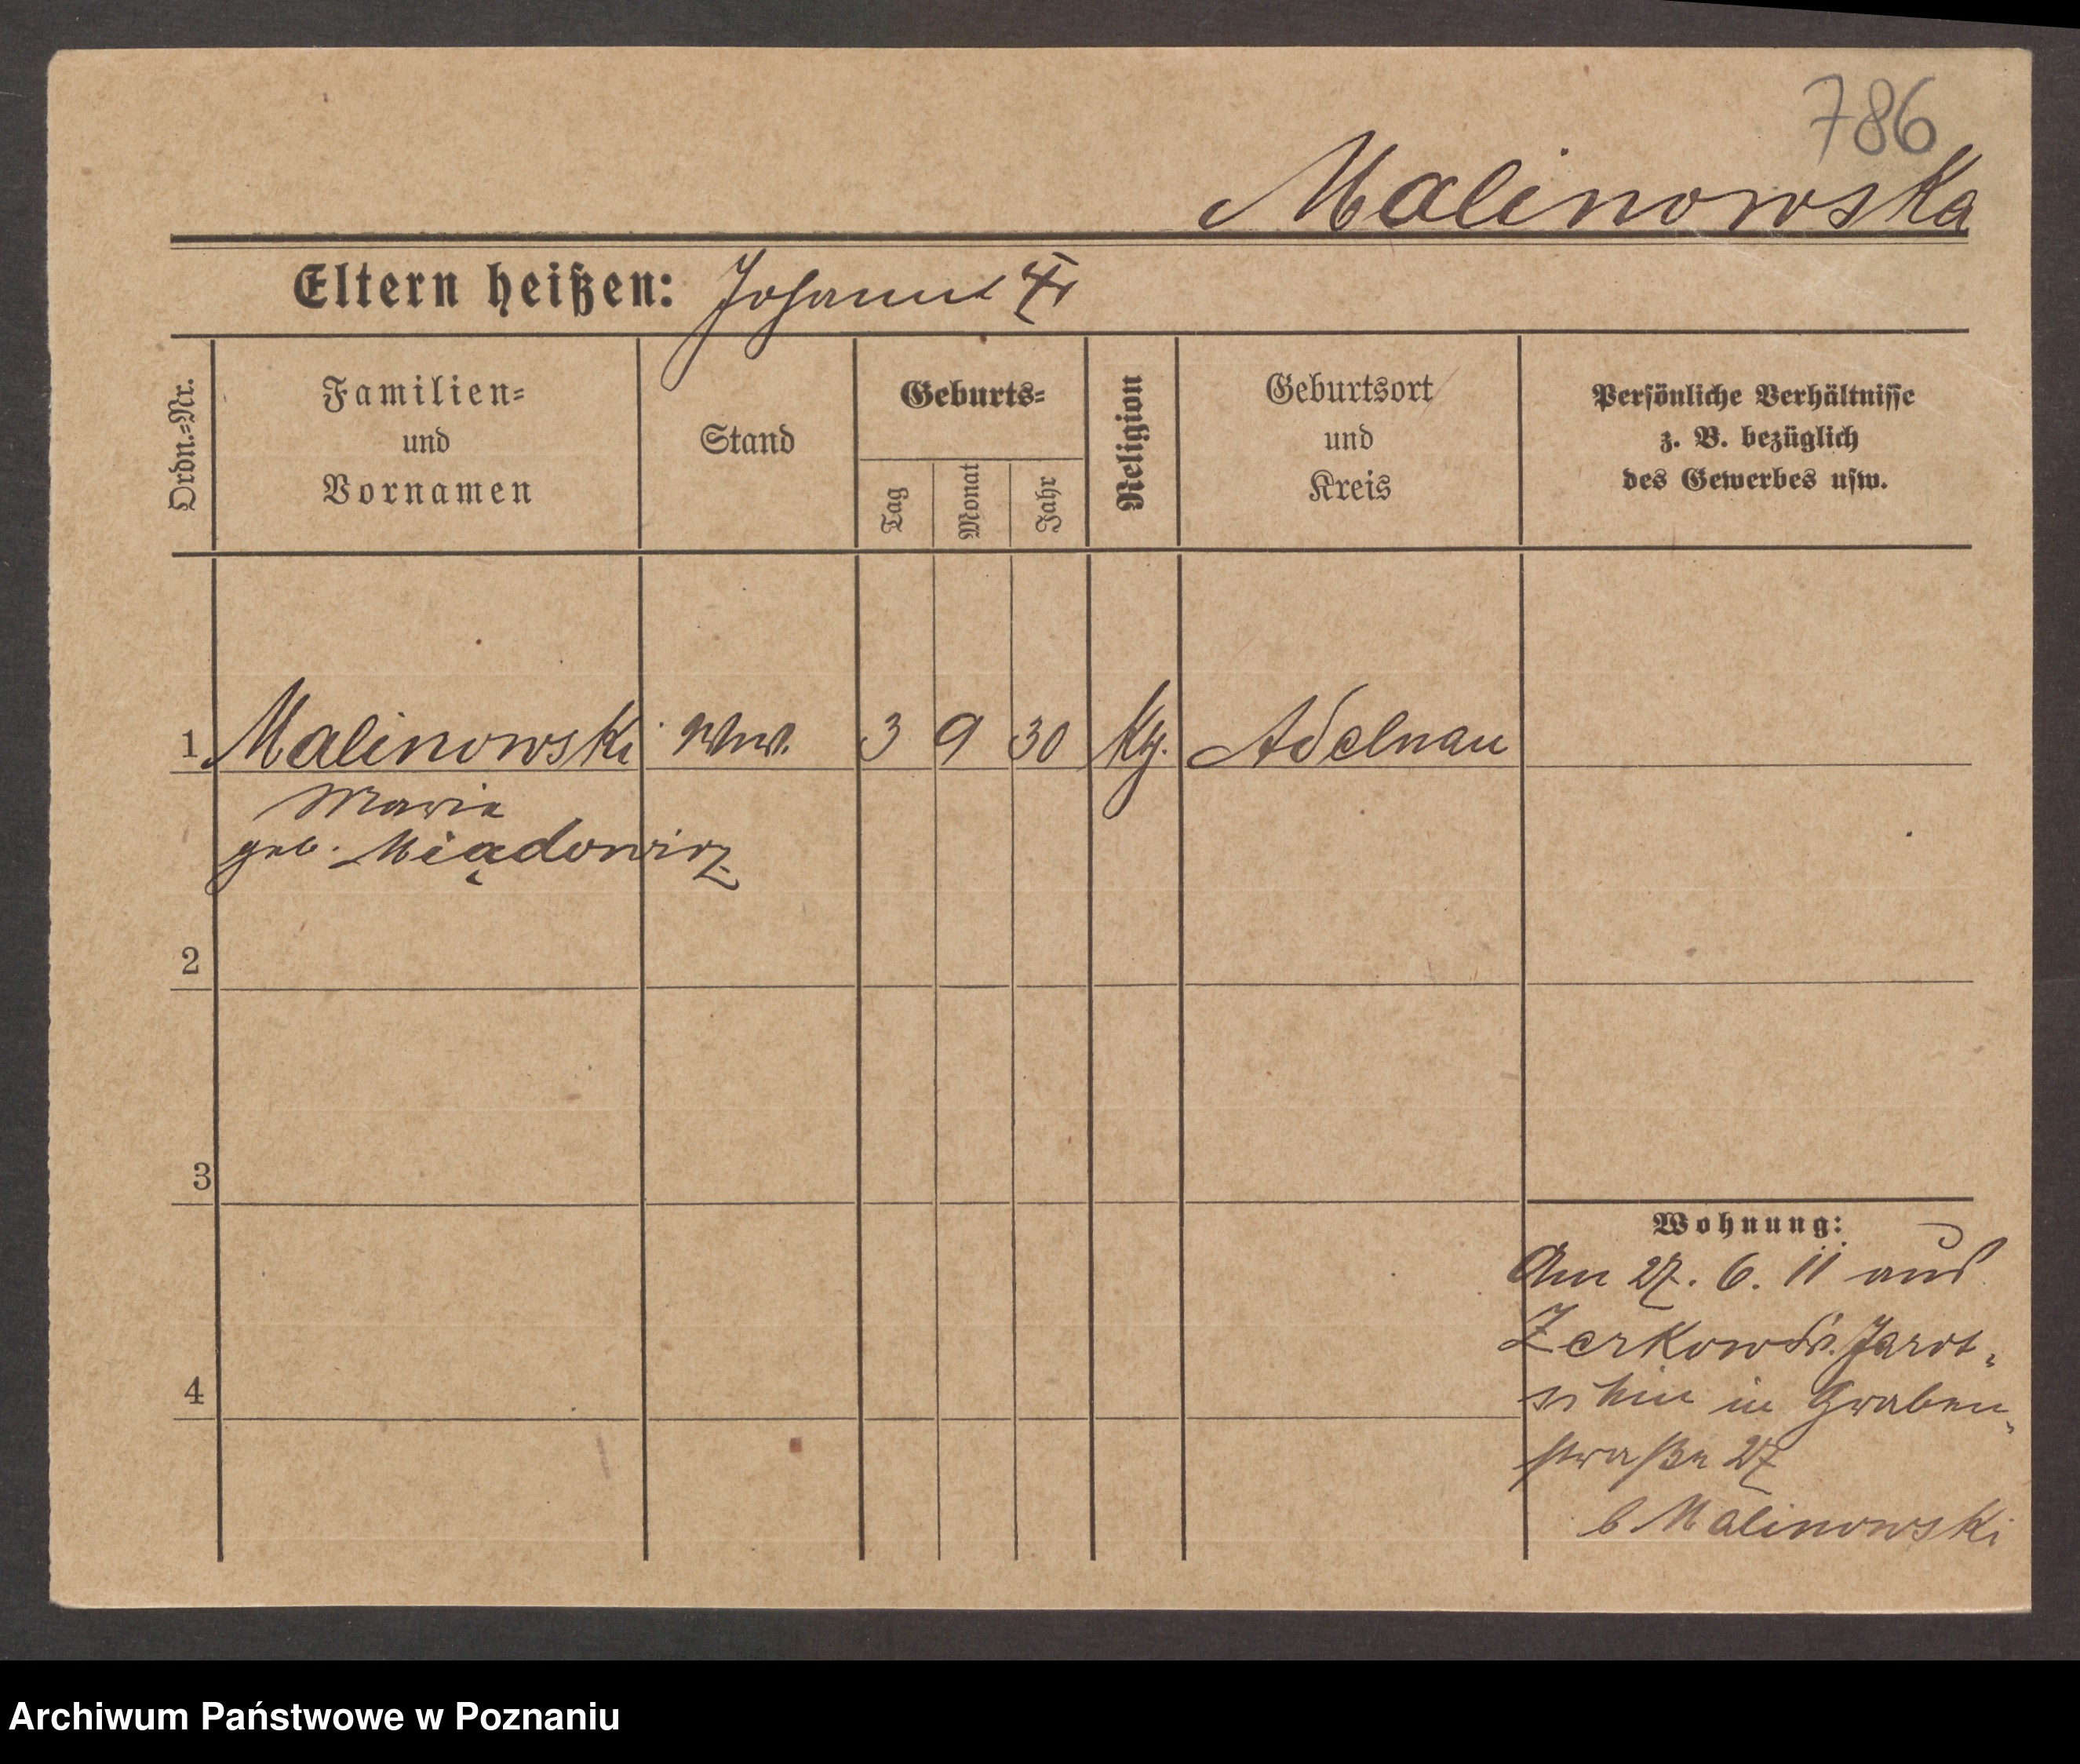 786
Malinowska
Eltern heißen: Johann
Ordn.=Nr.
Familien=
und
Vornamen
Stand
Geburts=
Tag
Monat
Jahr
Religion
Geburtsort
und
Kreis
Persönliche Verhältnisse
z. B. bezüglich
des Gewerbes usw.
1 Malinowski Wwe. 3 9 30 Kg. Adelnau
Maria
geb. Miądowicz
2
3
4
Wohnung:
Am 27. 6. 11 aus
Zerkow Kr. Jarot=
schin in Graben=
straße 27
b Malinowski
Archiwum Państwowe w Poznaniu